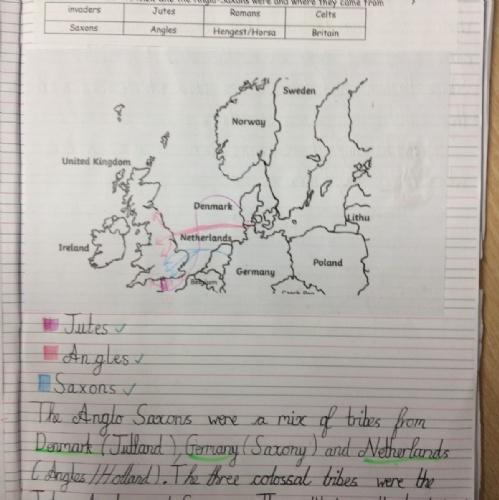 the Anglo-Saxons were and where they came from
invaders Jutes Romans Celts
Saxons Angles Hengest/Horsa Britain
Sweden
Norway
United Kingdom
Denmark
Lithu
Netherlands
Ireland
Poland
Germany
Belgium
Jutes ✓
Angles ✓
Saxons ✓
The Anglo Saxons were a mix of tribes from
Denmark (Jutland), Germany (Saxony) and Netherlands
(Angles/Holland). The three colossal tribes were the